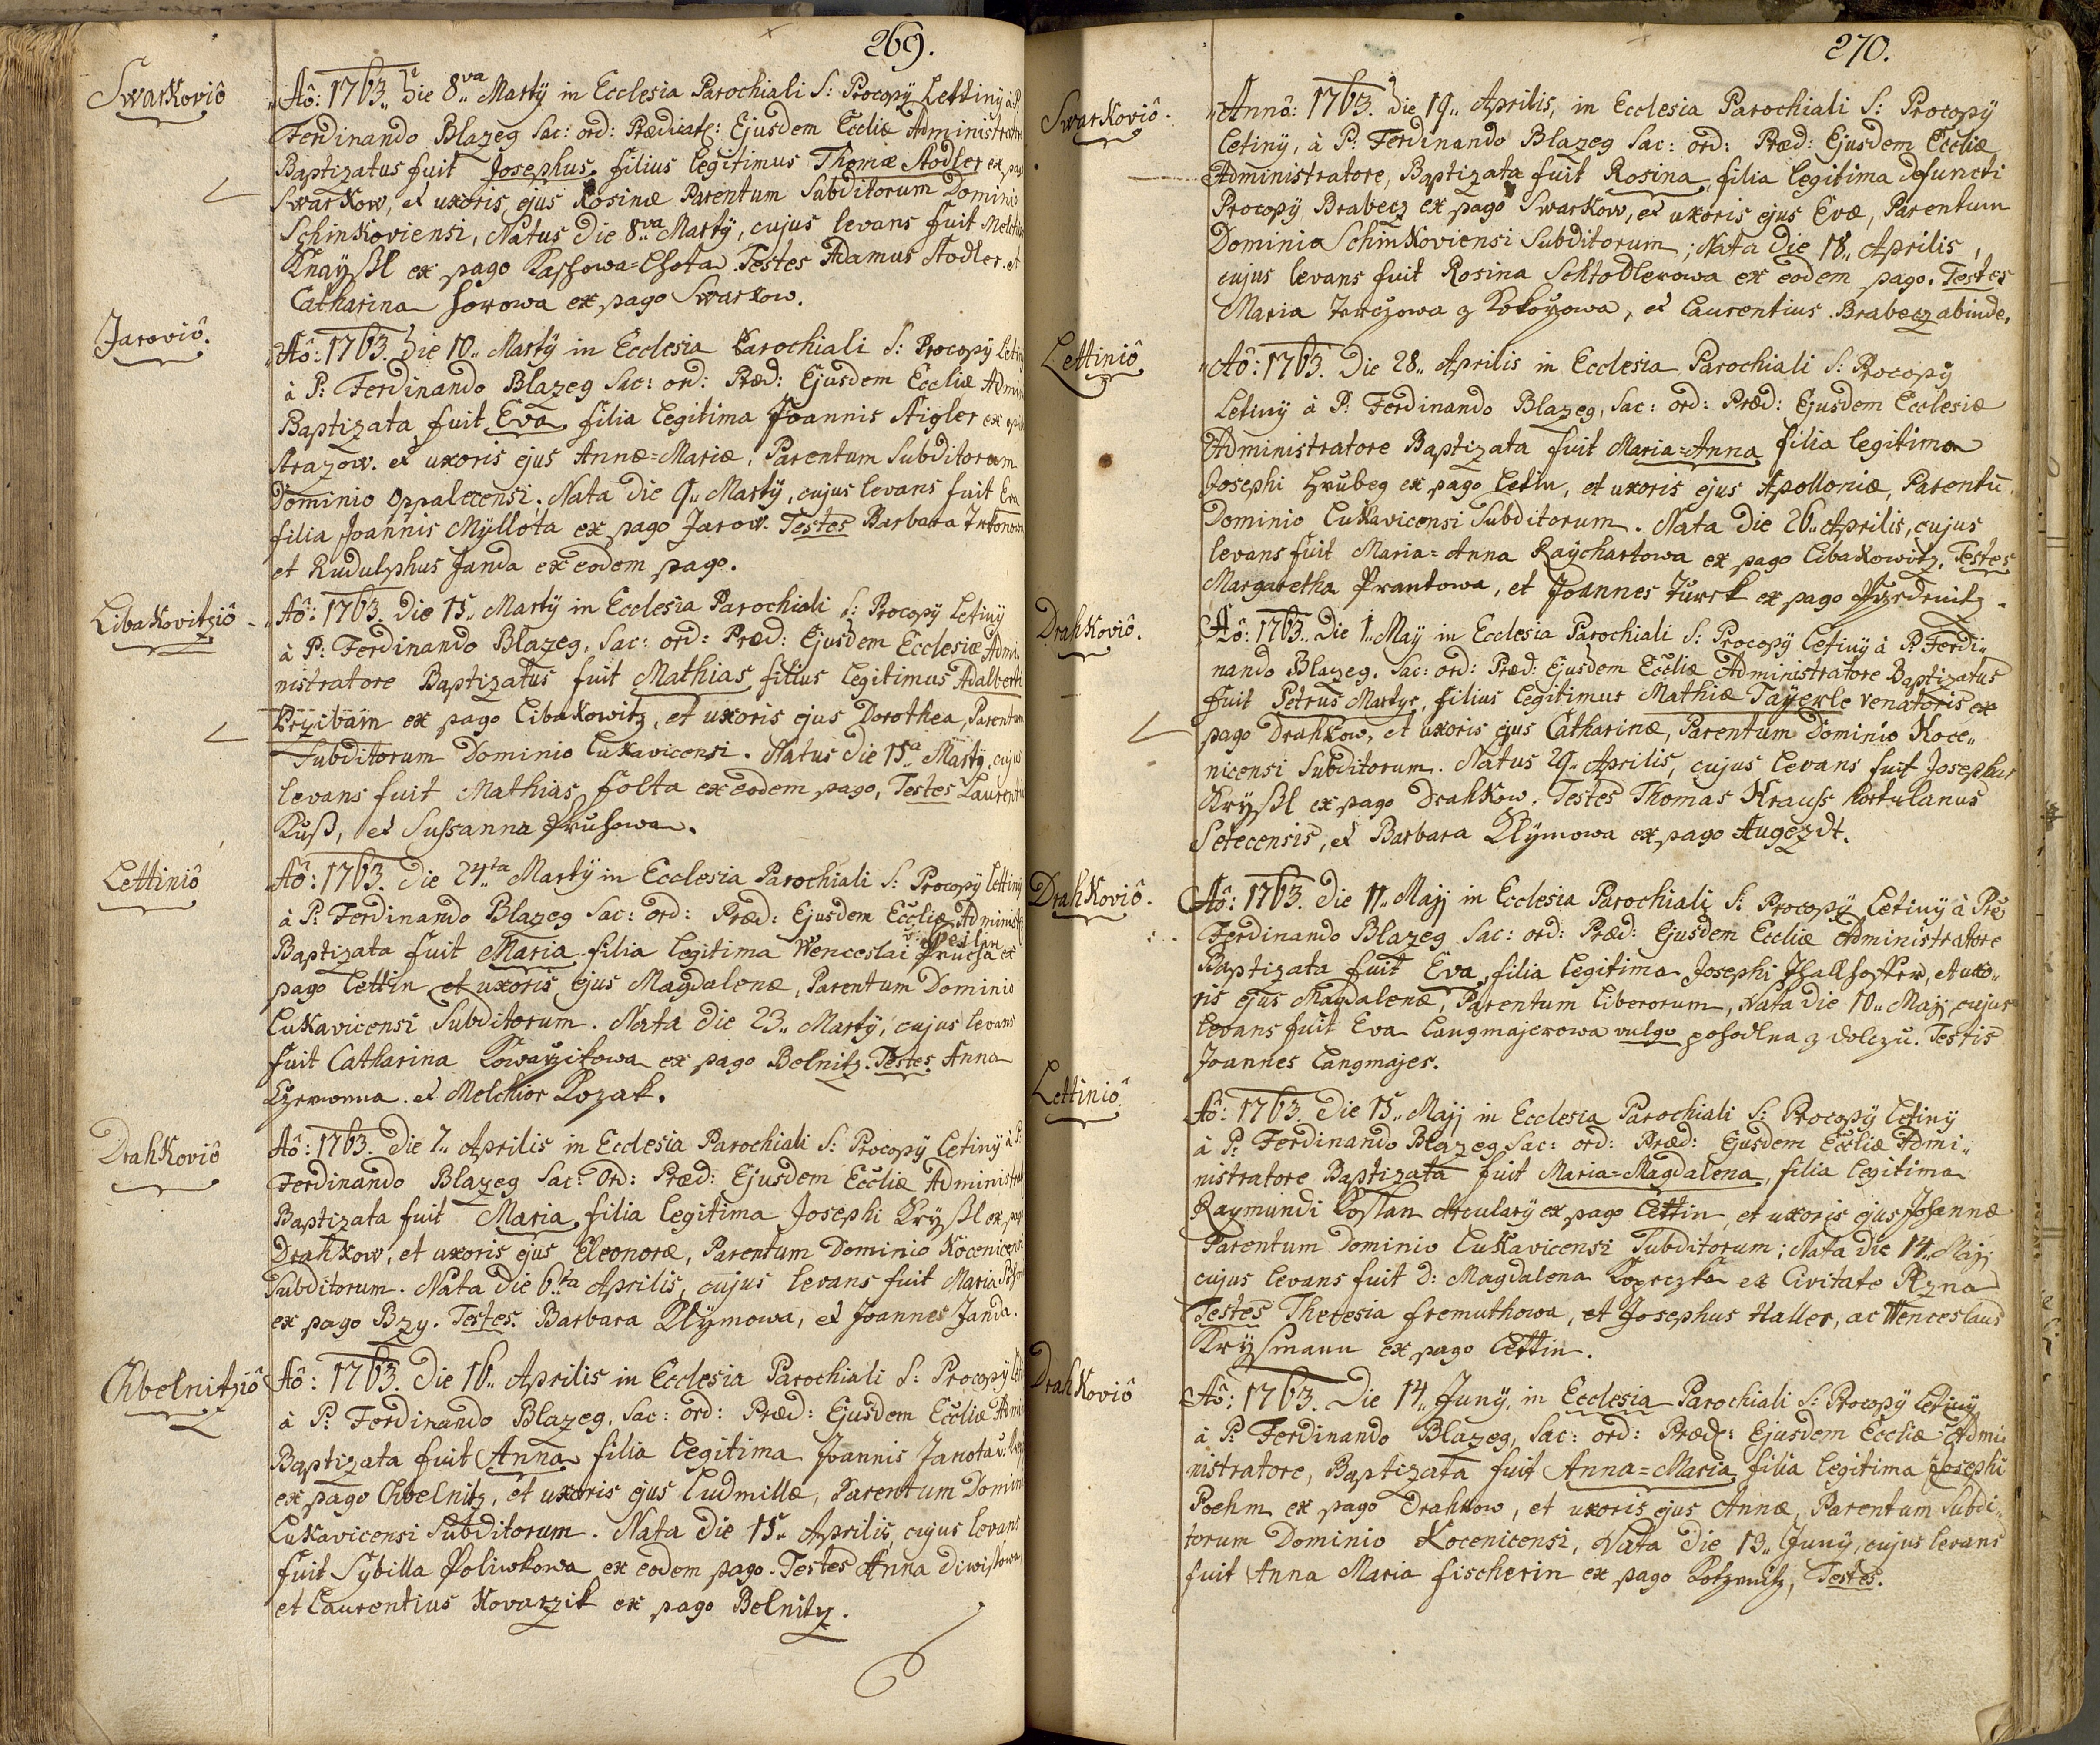 269.
Swarkoviô
Aô: 1763. Die 8va Martÿ in Ecclesia Parochiali S: Procopÿ Lettinÿ à P.
Ferdinando Blazeg Sac: ord: Prædicat: Ejusdem Eccliæ Administratore
Baptizatus fuit Josephus filius legitimus Thomæ Stodler ex pago
Swarkow, et uxoris ejus Rosinæ Parentum Subditorum Dominio
Schinkoviensi, Natus Die 8va Martÿ, cujus levans fuit Melchior
Knaÿßl ex pago Kasshowa=Lhota. Testes Adamus Stodler. et
Catharina horowa ex pago Swarkow.
Jaroviô.
Aô: 1763. Die 10.. Martÿ in Ecclesia Parochiali S: Procopÿ Letinÿ
à P: Ferdinando Blazeg Sac: ord: Præd: Ejusdem Eccliæ Admin
Baptizata fuit Eva filia legitima Joannis Stigler ex
Strazow. et uxoris ejus Annæ=Mariæ, Parentum Subditorum
Dominio Oppalecensi. Nata Die 9.. Martÿ, cujus levans fuit Eva
filia Joannis Mÿllota ex pago Jarow. Testes Barbara
et Rudulphus Janda ex eodem pago.
Libakovitziô
Aô: 1763. Die 15.. Martÿ in Ecclesia Parochiali S: Procopÿ Letinÿ
à P: Ferdinando Blazeg, Sac: ord: Præd: Ejusdem Ecclesiæ Admi
nistratore Baptizatus fuit Mathias filius legitimus Adalberti
Przibam ex pago Libakowitz, et uxoris ejus Dorothea, Parentum
Subditorum Dominio Lukavicensi. Natus Die 15a Martÿ, cujus
levans fuit Mathias Solta ex eodem pago, Testes Laurentius
Kuß, et Sussanna Pruhowa.
Lettiniô
Aô: 1763. Die 24ta Martÿ in Ecclesia Parochiali S: Procopÿ Lettinÿ
à P: Ferdinando Blazeg Sac: ord: Præd: Ejusdem Eccliæ Administ
Baptizata fuit Maria filia legitima Wenceslai Prucha ex
pago Lettin et uxoris ejus Magdalenæ, Parentum Dominio
Lukavicensi Subditorum. Nata Die 23.. Martÿ, cujus levans
fuit Catharina Kowarzikowa ex pago Belnitz. Testes Anna
et Melchior Kozak.
Drahkoviô
Aô: 1763. Die 7.. Aprilis in Ecclesia Parochiali S: Procopÿ Letinÿ à P:
Ferdinando Blazeg Sac: Ord: Præd: Ejusdem Eccliæ Administrat
Baptizata fuit Maria filia legitima Josephi Krÿßl ex pago
Drahkow, et uxoris ejus Eleonoræ, Parentum Dominio Kocenicensi
Subditorum. Nata Die 6ta Aprilis, cujus levans fuit Maria
ex pago Bzy. Testes. Barbara Klÿmowa, et Joannes Janda.
Chvelnitziô
Aô: 1763. Die 16.. Aprilis in Ecclesia Parochiali S: Procopÿ
à P: Ferdinando Blazeg, Sac: ord: Præd: Ejusdem Eccliæ Admi
Baptizata fuit Anna filia legitima Joannis Janota
ex pago Chvelnitz, et uxoris ejus Ludmillæ, Parentum Domin
Lukavicensi Subditorum. Nata Die 15.. Aprilis, cujus levans
fuit Sybilla Poliwkowa ex eodem pago. Testes Anna Diwiskowa
et Laurentius Kovarzik ex pago Belnitz.
270.
Swarkoviô.
Annô: 1763. Die 19.. Aprilis, in Ecclesia Parochiali S: Procopÿ
Letinÿ, à P: Ferdinando Blazeg Sac: ord: Præd: Ejusdem Eccliæ
Administratore, Baptizata fuit Rosina, filia legitima defuncti
Procopÿ Brabecz ex pago Swarkow, et uxoris ejus Evæ, Parentum
Dominio Schinkoviensi Subditorum; Nata Die 18.. Aprilis,
cujus levans fuit Rosina Schtodlerowa ex eodem pago. Testes
Maria z Kokorzowa, et Laurentius Brabecz abinde.
Lettiniô
Aô: 1763. Die 28.. Aprilis in Ecclesia Parochiali S: Procopÿ
Letinÿ à P: Ferdinando Blazeg, Sac: ord: Præd: Ejusdem Ecclesiæ
Administratore Baptizata fuit Maria=Anna filia legitima
Josephi Hrubeg ex pago Letin, et uxoris ejus Apolloniæ, Parentū
Dominio Lukavicensi Subditorum. Nata Die 26.. Aprilis, cujus
levans fuit Maria=Anna Raÿchartowa ex pago Libakowitz. Testes
Margaretha Prantowa, et Joannes Turek ex pago
Drahkoviô.
Aô: 1763. Die 1.. Maÿ in Ecclesia Parochiali S: Procopÿ Letinÿ à P: Ferdi„
nando Blazeg. Sac: ord: Præd: Ejusdem Eccliæ Administratore Baptizatus
fuit Petrus Martyr, filius legitimus Mathiæ Taÿerle venatoris ex
pago Drahkow, et uxoris ejus Catharinæ, Parentum Dominio Koce„
nicensi Subditorum. Natus 29.. Aprilis, cujus levans fuit Josephus
Krÿßl ex pago Drahkow. Testes Thomas Krauss hortulanus
Setecensis, et Barbara Klÿmowa ex pago Augezdt.
Drahkoviô.
Aô: 1763. Die 11.. Majj in Ecclesia Parochiali S: Procopÿ Letinÿ à Pre
Ferdinando Blazeg Sac: ord: Præd: Ejusdem Eccliæ Administratore
Baptizata fuit Eva, filia legitima Josephi Thallhoffer, et uxo„
ris ejus Magdalenæ, Parentum Liberorum, Nata Die 10.. Majj, cujus
levans fuit Eva Langmajerowa vulgo pohodlna z dolczu. Testis
Joannes Langmajer.
Lettiniô
Aô: 1763. Die 15.. Majj in Ecclesia Parochiali S: Procopÿ Letinÿ
à P: Ferdinando Blazeg Sac: ord: Præd: Ejusdem Eccliæ Admi„
nistratore Baptizata fuit Maria=Magdalena, filia legitima
Raymundi Koslan Arcularÿ ex pago Lettin, et uxoris ejus Johannæ
Parentum Dominio Lukavicensi Subditorum; Nata die 14.. Majj
cujus levans fuit D: Magdalena Koprczka ex Civitate Pzna
Testes Theresia fremuthowa, et Josephus Haller, ac Wenceslaus
Krysmann ex pago Lettin.
Drahkoviô
Aô: 1763. Die 14.. Junÿ, in Ecclesia Parochiali S: Procopÿ Letinÿ
à P: Ferdinando Blazeg, Sac: ord: Præd: Ejusdem Eccliæ Admi„
nistratore, Baptizata fuit Anna=Maria filia legitima Josephi
Poehm ex pago Drahkow, et uxoris ejus Annæ, Parentum Subdi„
torum Dominio Kocenicensi, Nata Die 13.. Junÿ, cujus levans
fuit Anna Maria fischerin ex pago Kotzenitz, Testes.